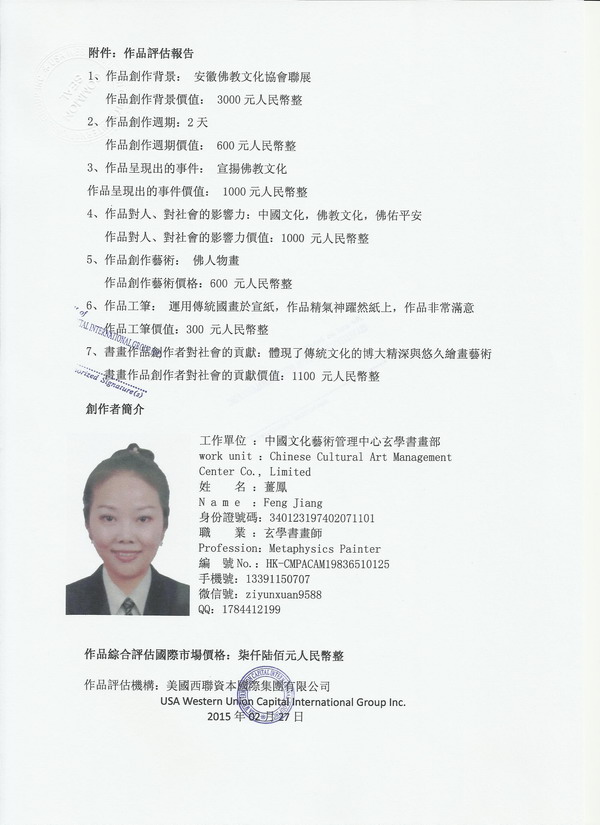 附件：作品評估報告
1、作品創作背景： 安徽佛教文化協會聯展
作品創作背景價值： 3000 元人民幣整
2、作品創作週期：2 天
作品創作週期價值： 600 元人民幣整
3、作品呈現出的事件： 宣揚佛教文化
作品呈現出的事件價值： 1000 元人民幣整
4、作品對人、對社會的影響力：中國文化，佛教文化，佛佑平安
作品對人、對社會的影響力價值：1000 元人民幣整
5、作品創作藝術： 佛人物畫
作品創作藝術價格：600 元人民幣整
6、作品工筆： 運用傳統國畫於宣紙，作品精氣神躍然紙上，作品非常滿意
作品工筆價值：300 元人民幣整
7、書畫作品創作者對社會的貢獻：體現了傳統文化的博大精深與悠久繪畫藝術
書畫作品創作者對社會的貢獻價值：1100 元人民幣整
創作者簡介
工作單位 ：中國文化藝術管理中心玄學書畫部
work unit ：Chinese Cultural Art Management
Center Co., Limited
姓 名 ：薑鳳
Name ：Feng Jiang
身份證號碼：340123197402071101
職 業 ：玄學書畫師
Profession：Metaphysics Painter
編 號 No.：HK-CMPACAM19836510125
手機號：13391150707
微信號：ziyunxuan9588
QQ：1784412199
作品綜合評估國際市場價格：柒仟陸佰元人民幣整
作品評估機構：美國西聯資本國際集團有限公司
USA Western Union Capital International Group Inc.
2015 年 02 月 27 日